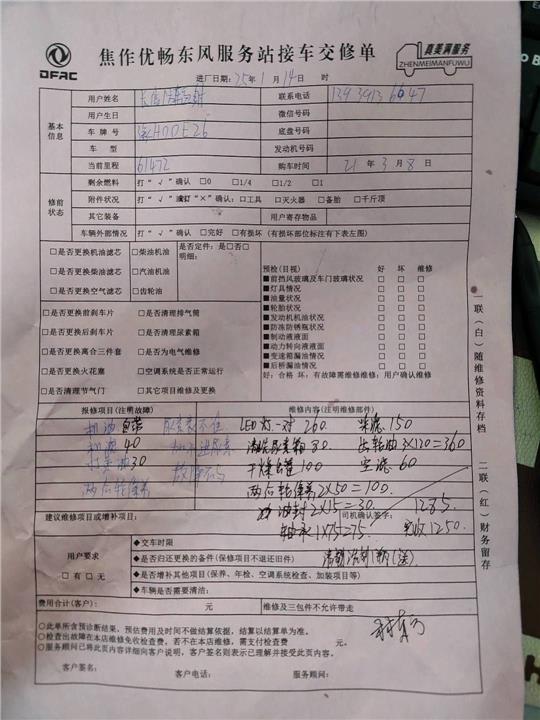 DFAC
焦作优畅东风服务站接车交修单
真美满服务
ZHENMEIMANFUWU
进厂日期：25年1月14日 时
基本信息
用户姓名
联系电话 13939136647
用户生日
微信号码
车牌号
底盘号码
车 型
发动机号码
当前里程 61472
购车时间 21年3月8日
修前状态
剩余燃料 打“√”确认 □0 □1/4 □1/2 □1
附件状况 打“√”或打“×”确认：□工具 □灭火器 □备胎 □千斤顶
其它装备
用户寄存物品
车辆外部情况 打“√”确认 □完好 □有损坏（有损坏部位标注有下表左图）
□是否更换机油滤芯 □柴油机油 是否定件：是□否□
□是否更换柴油滤芯 □汽油机油 明细：
□是否更换空气滤芯 □齿轮油
□是否更换前刹车片 □是否清理排气筒
□是否更换后刹车片 □是否清理尿素箱
□是否更换离合三件套 □是否为电气维修
□是否更换火花塞 □空调系统是否正常运行
□是否清理节气门 □其它项目维修及更换
预检（目视） 好 坏 维修
■前挡风玻璃及车门玻璃状况 □ □ □
■灯具情况 □ □ □
■油量状况 □ □ □
■轮胎状况 □ □ □
■发动机机油状况 □ □ □
■防冻防锈瓶状况 □ □ □
■制动液液面 □ □ □
■动力转向液液面 □ □ □
■变速箱漏油情况 □ □ □
■后桥漏油情况 □ □ □
好：合格 坏：有故障需维修维修：用户确认维修
报修项目（注明故障）
维修内容（注明维修部件）
机滤 40
打黄油 30
LED灯一对 260
柴滤 150
清洗尿素箱 80
齿轮油 3×120=360
干燥罐 100
空滤 60
2×50=100
油封 2×15=30
1285
轴承 1×75=75
实收 1250
建议维修项目或增补项目：
司机确认签字：
用户要求
□有 □无
◆交车时限
◆是否归还更换的备件（保修项目不退还旧件）
◆是否增补其他项目（保养、年检、空调系统检查、加装项目等）
◆车辆是否需要清洁：
费用合计（客户）： 元
维修及三包件不允许带走
○此单所含预诊断结果，预估费用及时间不做结算依据，结算以结算单为准。
○检查出故障在本店维修免收检查费。若不在本店维修，需支付检查费 元。
○服务顾问已将此页内容详细向客户说明，客户签名则表示已理解并接受此页内容。
客户签名： 客户电话： 服务顾问：
一联（白）随维修资料存档
二联（红）财务留存